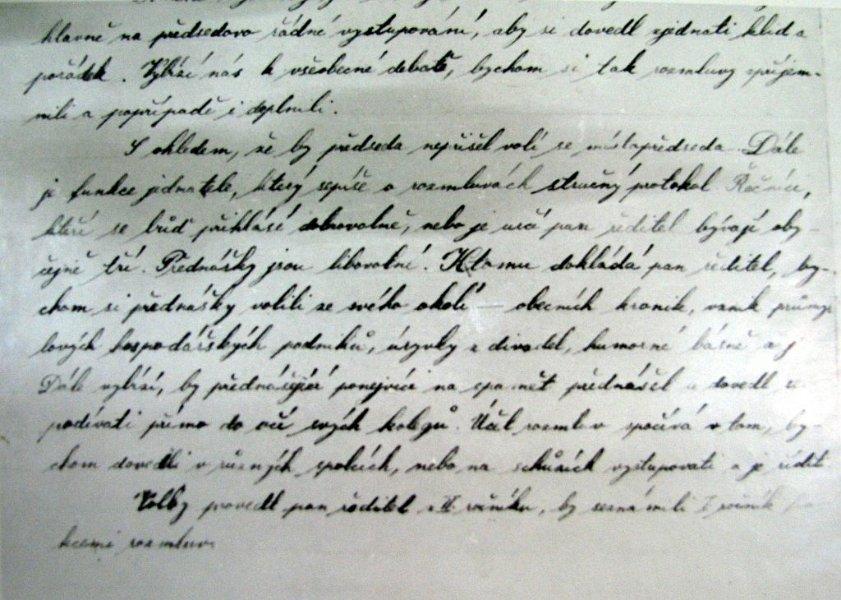 hlavně na předsedovo řádné vystupování, aby si dovedl zjednati klid a
pořádek. Vybízí nás k všeobecné debatě, bychom si tak rozmluvy zpříjem-
nili a popřípadě i doplnili.
S ohledem, že by předseda nepřišel volí se místopředseda. Dále
je funkce jednatele, který sepíše o rozmluvách stručný protokol. Řečníci,
kteří se buď přihlásí dobrovolně, nebo je určí pan ředitel bývají oby-
čejně tři. Přednášky jsou libovolné. K tomu dokládá pan ředitel, by-
chom si přednášky volili ze svého okolí — obecních kronik, vznik průmys
lových hospodářských podniků, úryvky z divadel, humorné básně a j.
Dále vybízí, by přednášející ponejvíce na spamět přednášel a dovedl se
podívati přímo do očí svých kolegů. Účel rozmluv spočívá v tom, by-
chom dovedli v různých spolcích, nebo na schůzích vystupovati a je řídit
Volby provedl pan ředitel z II. ročníku, by seznámili I ročník
kcemi rozmluv.